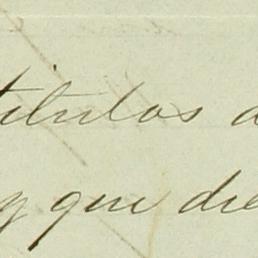 titulos d
y que die